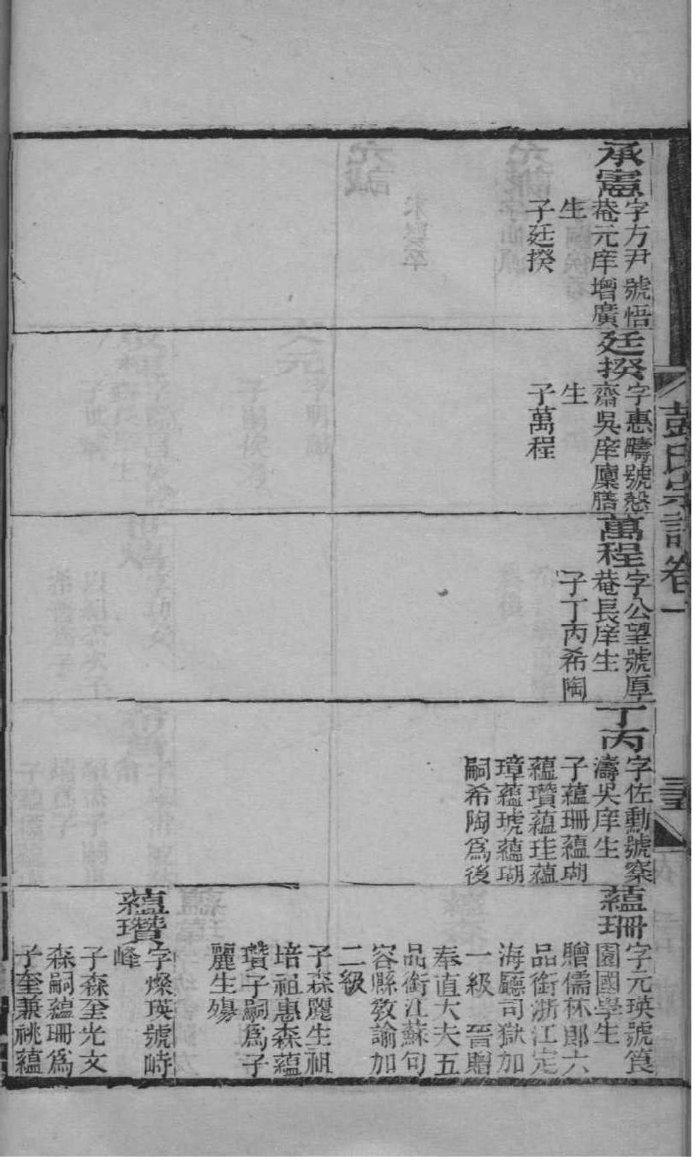 彭氏宗譜卷一
承憲
字方尹號悟
菴元庠增廣
生
子廷揆
廷揆
字惠疇號慤
齋吳庠廩膳
生
子萬程
萬程
字公望號厚
菴長庠生
子丁丙希陶
丁丙
字佐勳號寀
濤吳庠生
子蘊珊蘊瑚
蘊瓚蘊珪蘊
璋蘊琥蘊瑚
嗣希陶爲後
蘊珊
字元瑛號筤
園國學生
贈儒林郎六
品銜浙江定
海廳司獄加
一級 晉贈
奉直大夫五
品銜江蘇句
容縣敎諭加
二級
子森麗生祖
培祖惠森蘊
瓚子嗣爲子
麗生殤
蘊瓚
字燦瑛號峙
峰
子森奎光文
森嗣蘊珊爲
子奎兼祧蘊